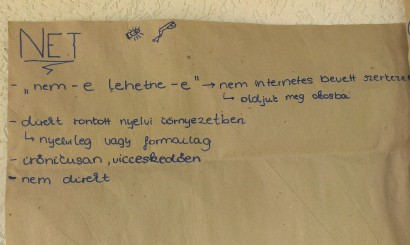 NET
- „nem-e lehetne-e" → nem internetes bevett
↳ oldjuk meg okosba
- direkt rontott nyelvi környezetben
↳ nyelvileg vagy formailag
- ironikusan, vicceskedően
- nem direkt